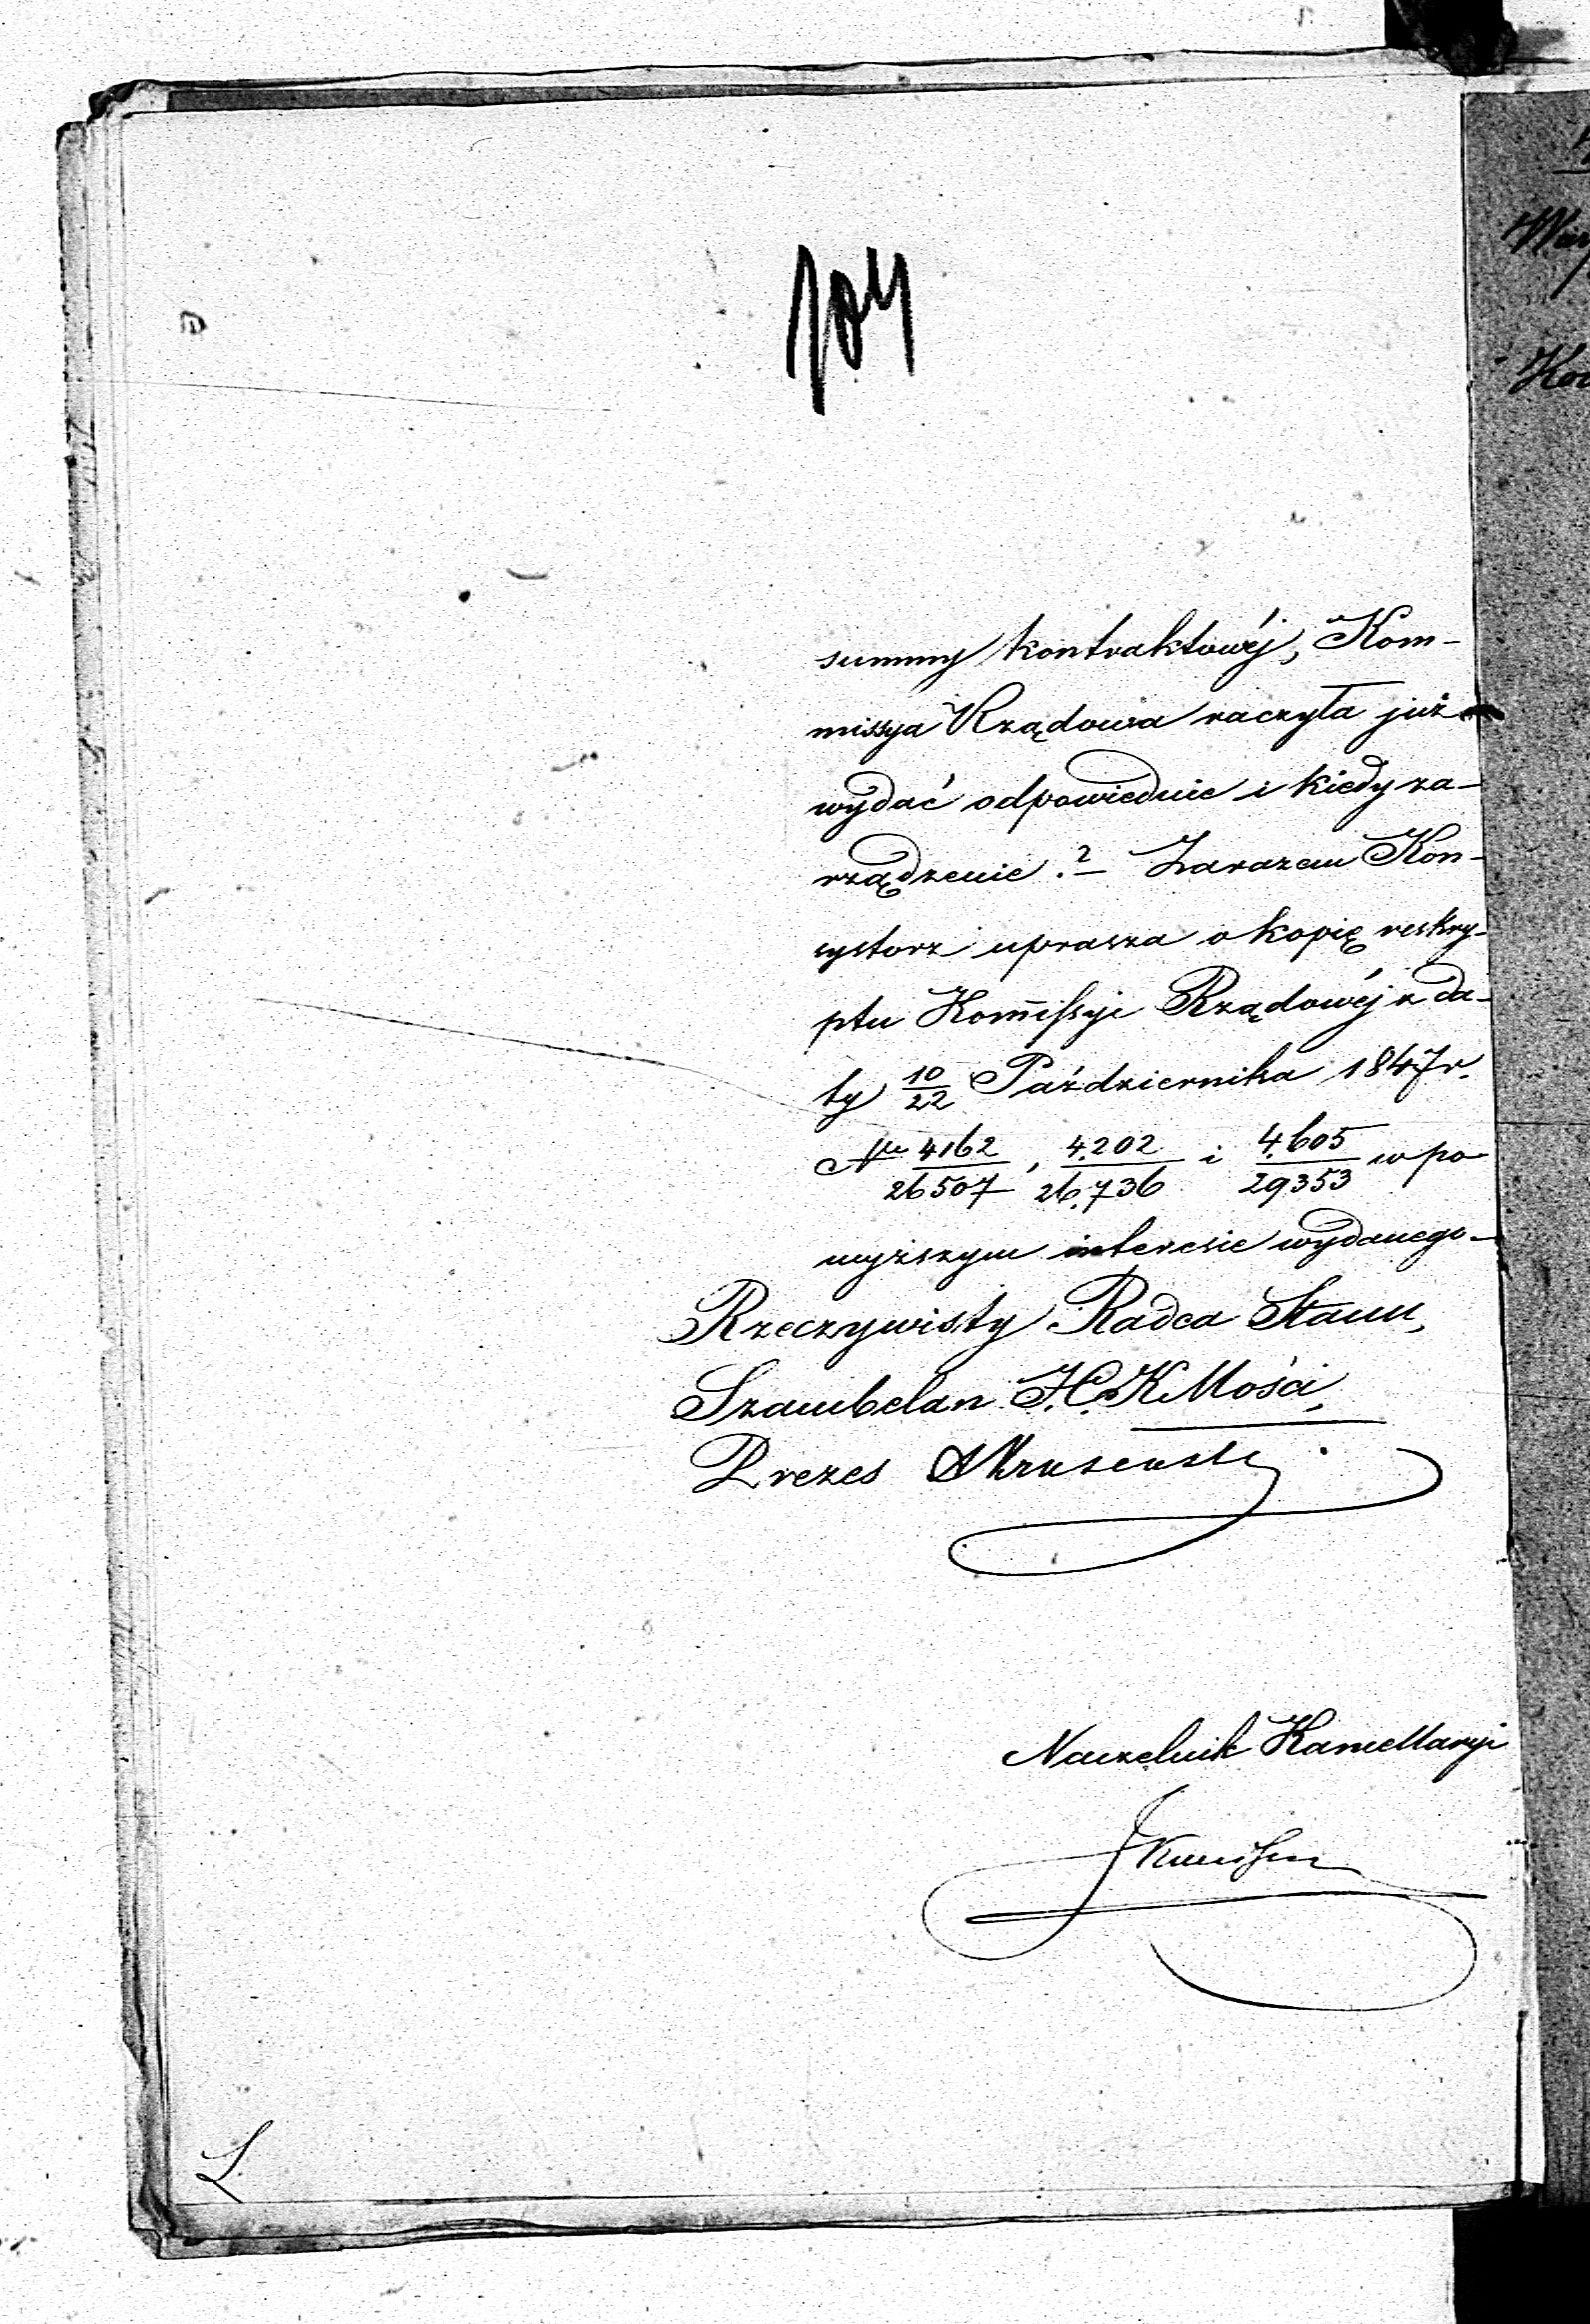 104
summy kontraktowéj, Kom-
missya Rządowa raczyła już
wydać odpowiednie i kiedy za-
rządzenie.? — Zarazem Kon-
systorz uprasza o kopię reskry-
ptu Kommissyi Rządowéj z da-
ty 10/22 Października 1847 r.
Nr 4162/26507, 4.202/26.736 i 4.605/29353 w po-
wyższym interesie wydanego.
Rzeczywisty Radca Stanu,
Szambelan J.C.K Mości,
Prezes
Naczelnik Kancellaryi
L.